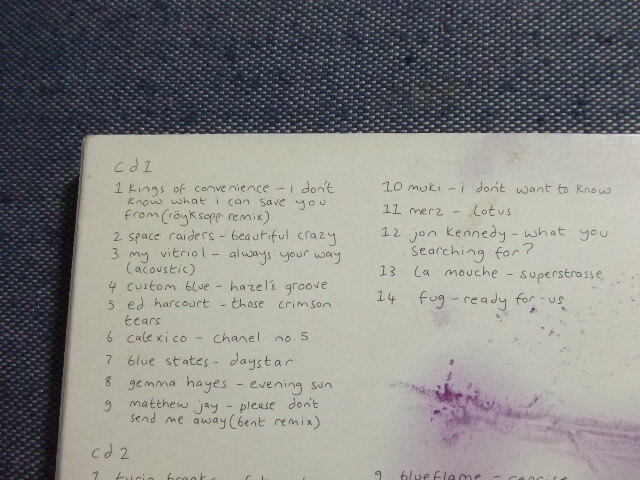 cd1
1 kings of convenience - i don't
know what i can save you
from (röyksopp remix)
2 space raiders - beautiful crazy
3 my vitriol - always: your way
(acoustic)
4 custom blue - hazel's groove
5 ed harcourt - those crimson
tears
6 calexico - chanel no. 5
7 blue states - daystar
8 gemma hayes - evening sun
9 matthew jay - please don't
send me away (bent remix)
10 muki - i don't want to know
11 merz - lotus
12 jon kennedy - what you
searching for?
13 la mouche - superstrasse
14 fug - ready for us
cd 2
1 turin brakes -
9 blueflame - reprise